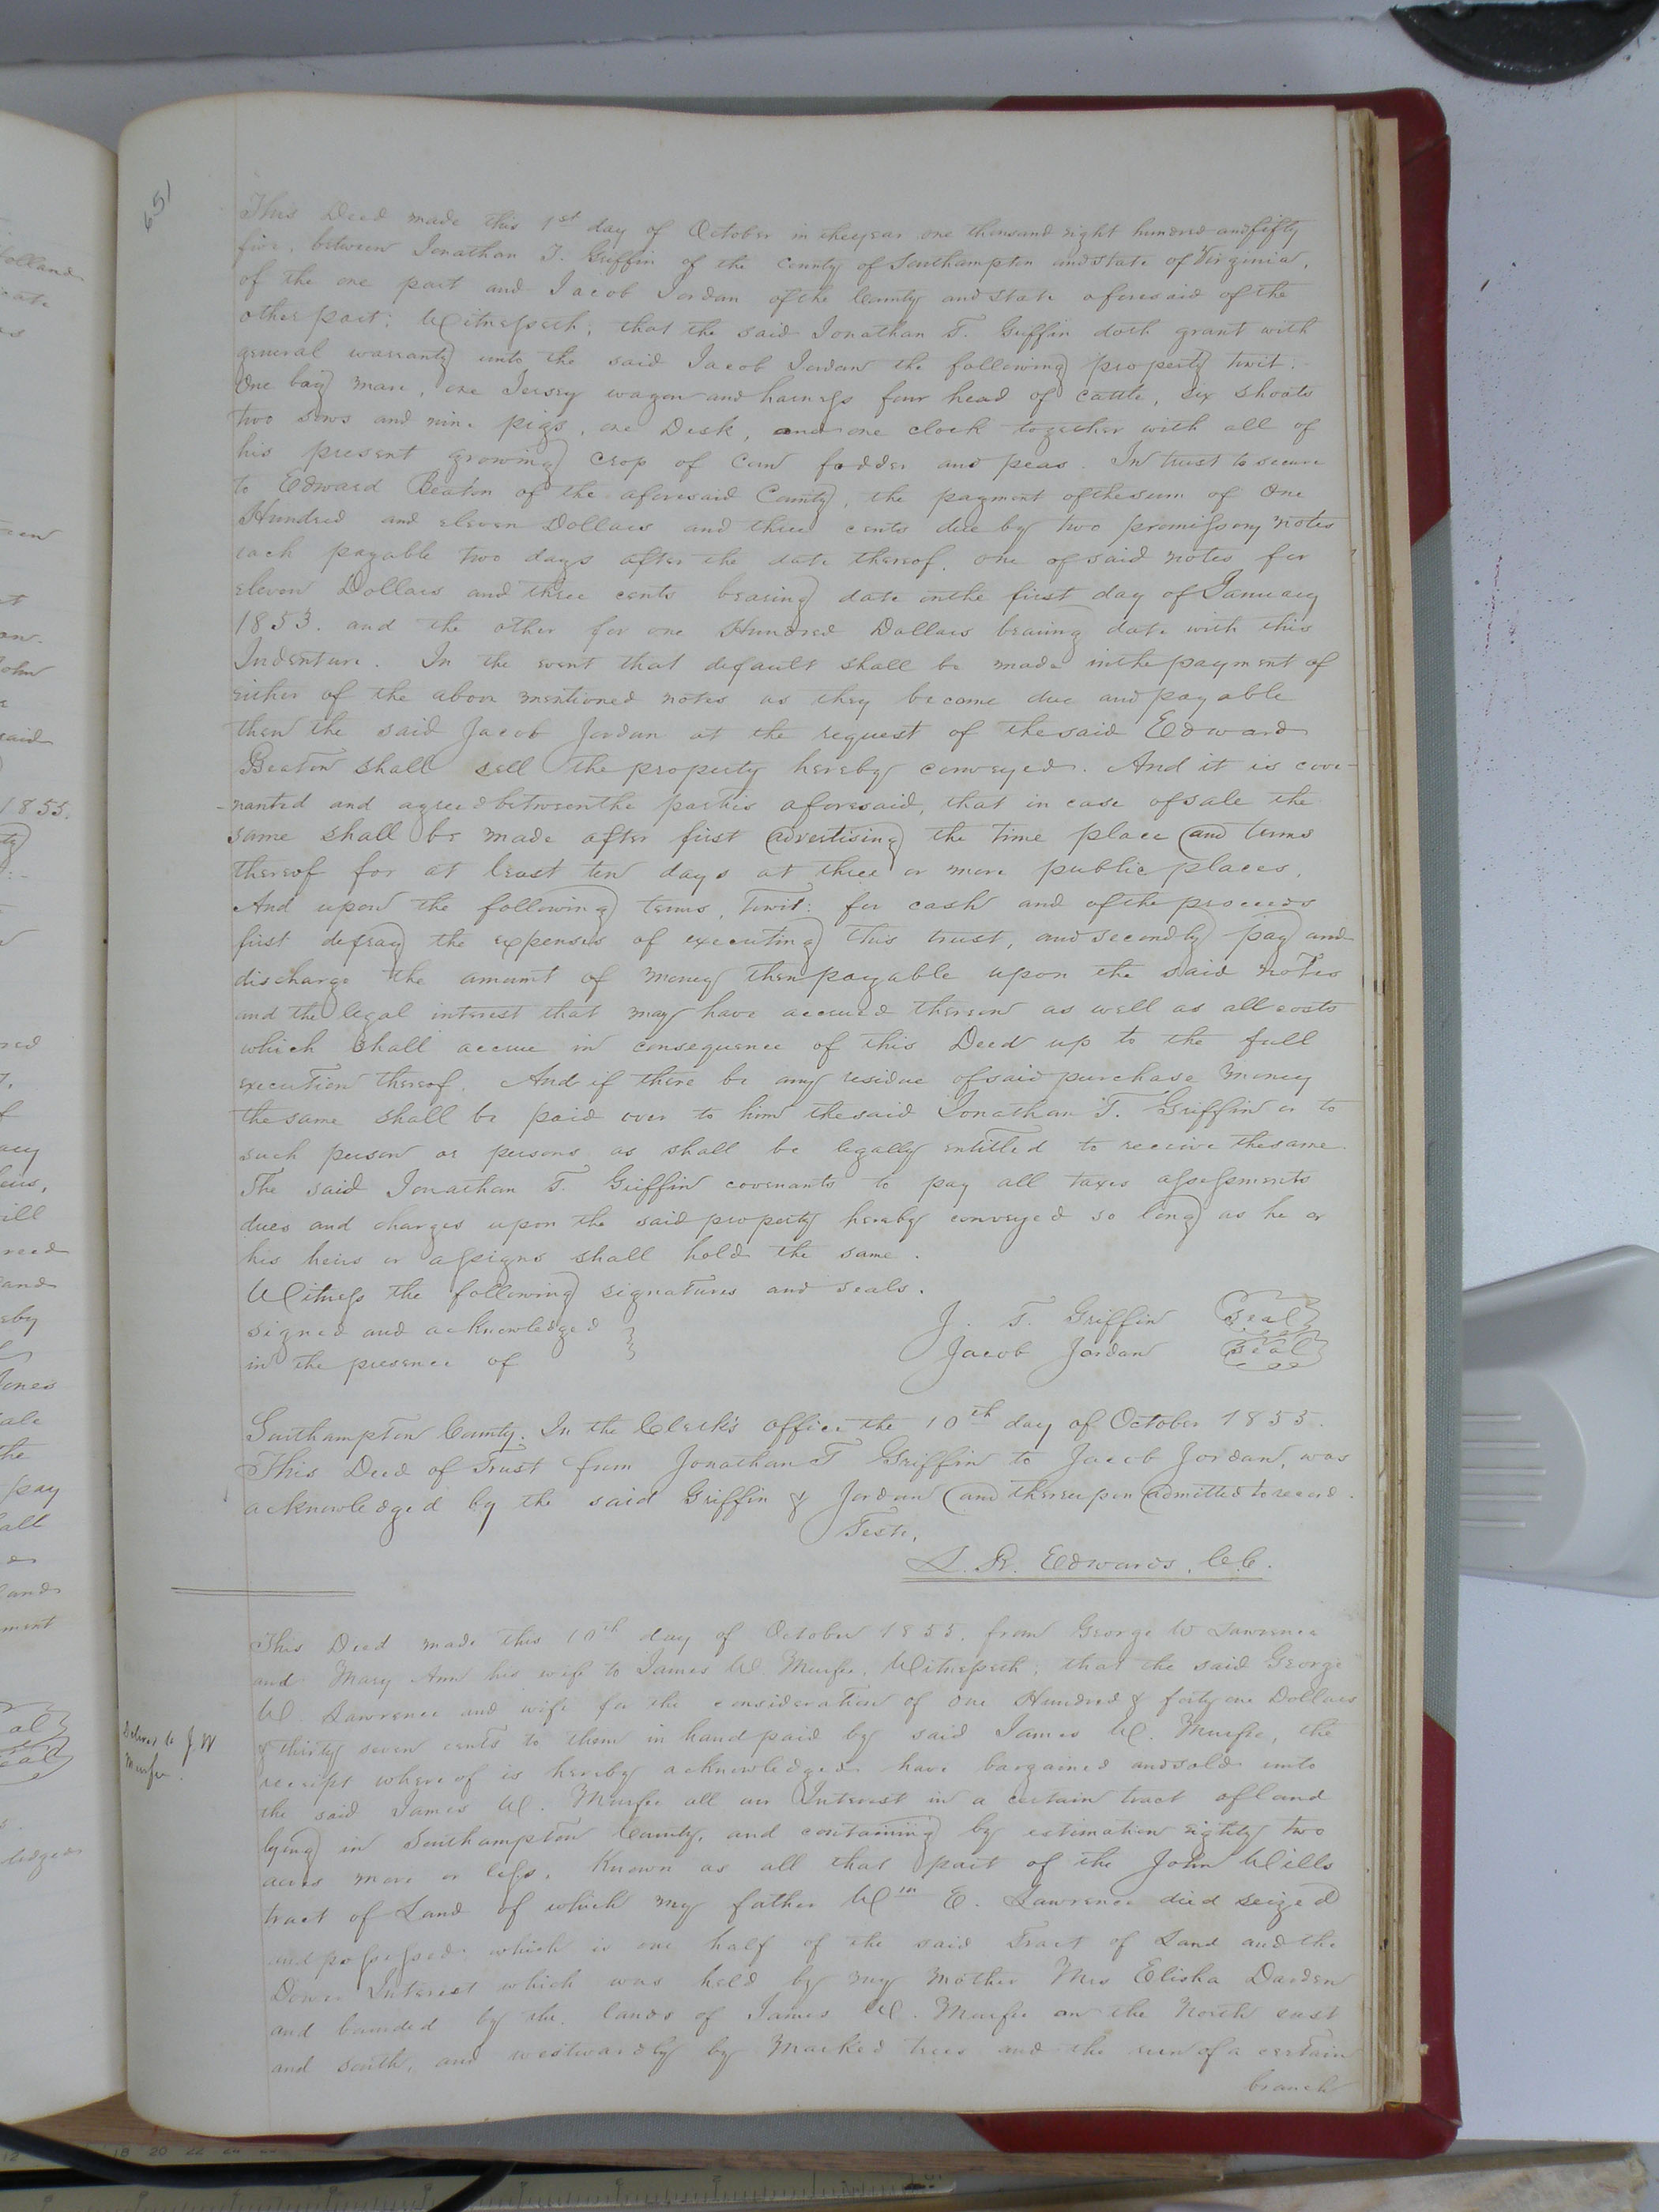 651
This Deed made this 1st day of October in the year one thousand eight hundred and fifty
five, between Jonathan T. Griffin of the County of Southampton and State of Virginia,
of the one part and Jacob Jordan of the County and State aforesaid of the
other part; Witnesseth, that the said Jonathan T. Griffin doth grant with
general warranty unto the said Jacob Jordan the following property towit:
One bay mare, one Jersey wagon and harness four head of cattle, six shoats
two sows and nine pigs, one Desk, and one clock together with all of
his present growing crop of Corn fodder and peas. In trust to secure
to Edward Beaton of the aforesaid County, the payment of the sum of One
Hundred and eleven Dollars and three cents due by two promissory notes
each payable two days after the date thereof, one of said notes for
eleven Dollars and three cents bearing date on the first day of January
1853. and the other for one Hundred Dollars bearing date with this
Indenture. In the event that default shall be made in the payment of
either of the above mentioned notes as they become due and payable
then the said Jacob Jordan at the request of the said Edward
Beaton shall sell the property hereby conveyed. And it is cove-
-nanted and agreed between the parties aforesaid, that in case of sale the
same shall be made after first advertising the time place and terms
thereof for at least ten days at three or more public places,
And upon the following terms, Towit: for cash and of the proceeds
first defray the expenses of executing this trust, and secondly pay and
discharge the amount of money then payable upon the said notes
and the legal interest that may have accrued thereon as well as all costs
which shall accrue in consequence of this Deed up to the full
execution thereof. And if there be any residue of said purchase money
the same shall be paid over to him the said Jonathan T. Griffin or to
such person or persons as shall be legally entitled to receive the same.
The said Jonathan T. Griffin covenants to pay all taxes assessments
dues and charges upon the said property hereby conveyed so long as he or
his heirs or assigns shall hold the same.
Witness the following signatures and seals.
signed and acknowledged
in the presence of
J. T. Griffin Seal
Jacob Jordan Seal
Southampton County. In the Clerk's office the 10th day of October 1855.
This Deed of Trust from Jonathan T Griffin to Jacob Jordan, was
acknowledged by the said Griffin & Jordan and thereupon admitted to record.
Teste,
L. R. Edwards, C.C.
This Deed made this 10th day of October 1855, from George W Lawrence
and Mary Ann his wife to James W. Murfee, Witnesseth; that the said George
W. Lawrence and wife for the consideration of one Hundred & forty one Dollars
& thirty seven cents to them in hand paid by said James W. Murfee, the
receipt whereof is hereby acknowledged have bargained and sold unto
the said James W. Murfee all our Interest in a certain tract of land
lying in Southampton County, and containing by estimation eighty two
acres more or less. Known as all that part of the John Wills
tract of Land of which my father Wm E. Lawrence died seized
and possessed which is one half of the said Tract of Land and the
Dower Interest which was held by my mother Mrs Elisha Darden
and bounded by the lands of James W. Murfee on the North east
and South, and westwardly by Marked trees and the run of a certain
branch
Deliverd to J. W
Murfee.